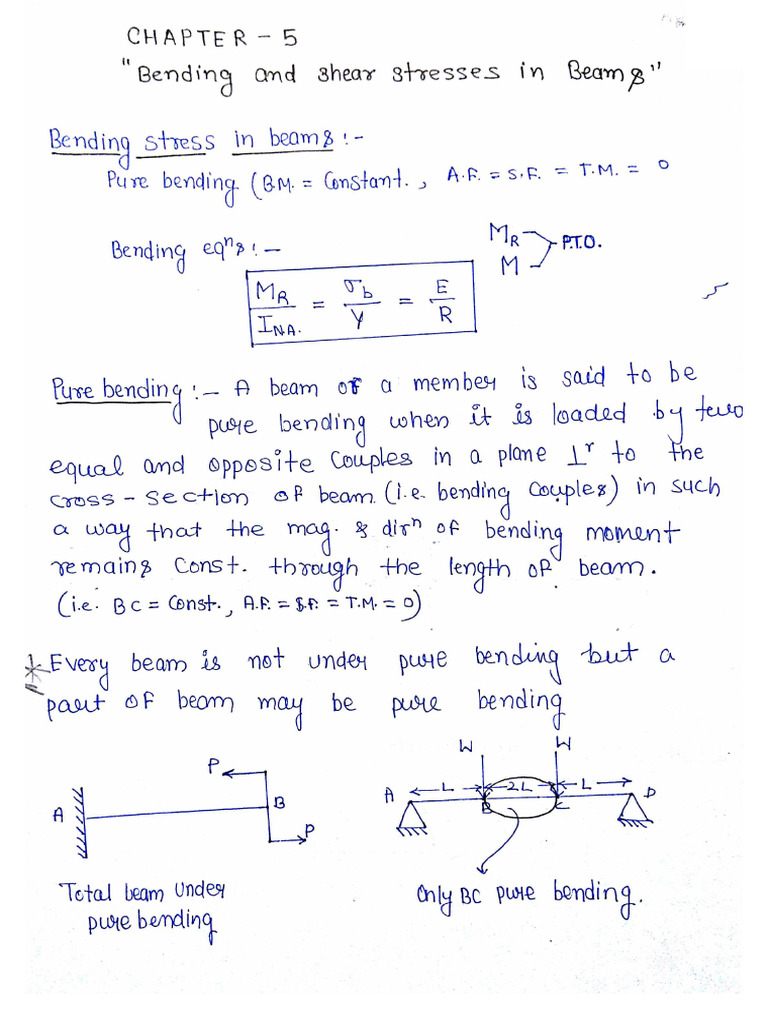 CHAPTER - 5
"Bending and shear stresses in Beams"
Bending stress in beams :-
Pure bending (B.M. = Constant. , A.F. = S.F. = T.M. = 0
Bending eqⁿs :-
M_R
M
P.T.O.
M_R / I_NA. = σ_b / Y = E / R
Pure bending :- A beam or a member is said to be
pure bending when it is loaded by two
equal and opposite couples in a plane ⊥ʳ to the
cross-section of beam (i.e. bending couples) in such
a way that the mag. & dirⁿ of bending moment
remains const. through the length of beam.
(i.e. BC = Const., A.F. = S.F. = T.M. = 0)
* Every beam is not under pure bending but a
part of beam may be pure bending
P
A
B
P
Total beam under
pure bending
W W
A L 2L L D
B C
Only BC pure bending.